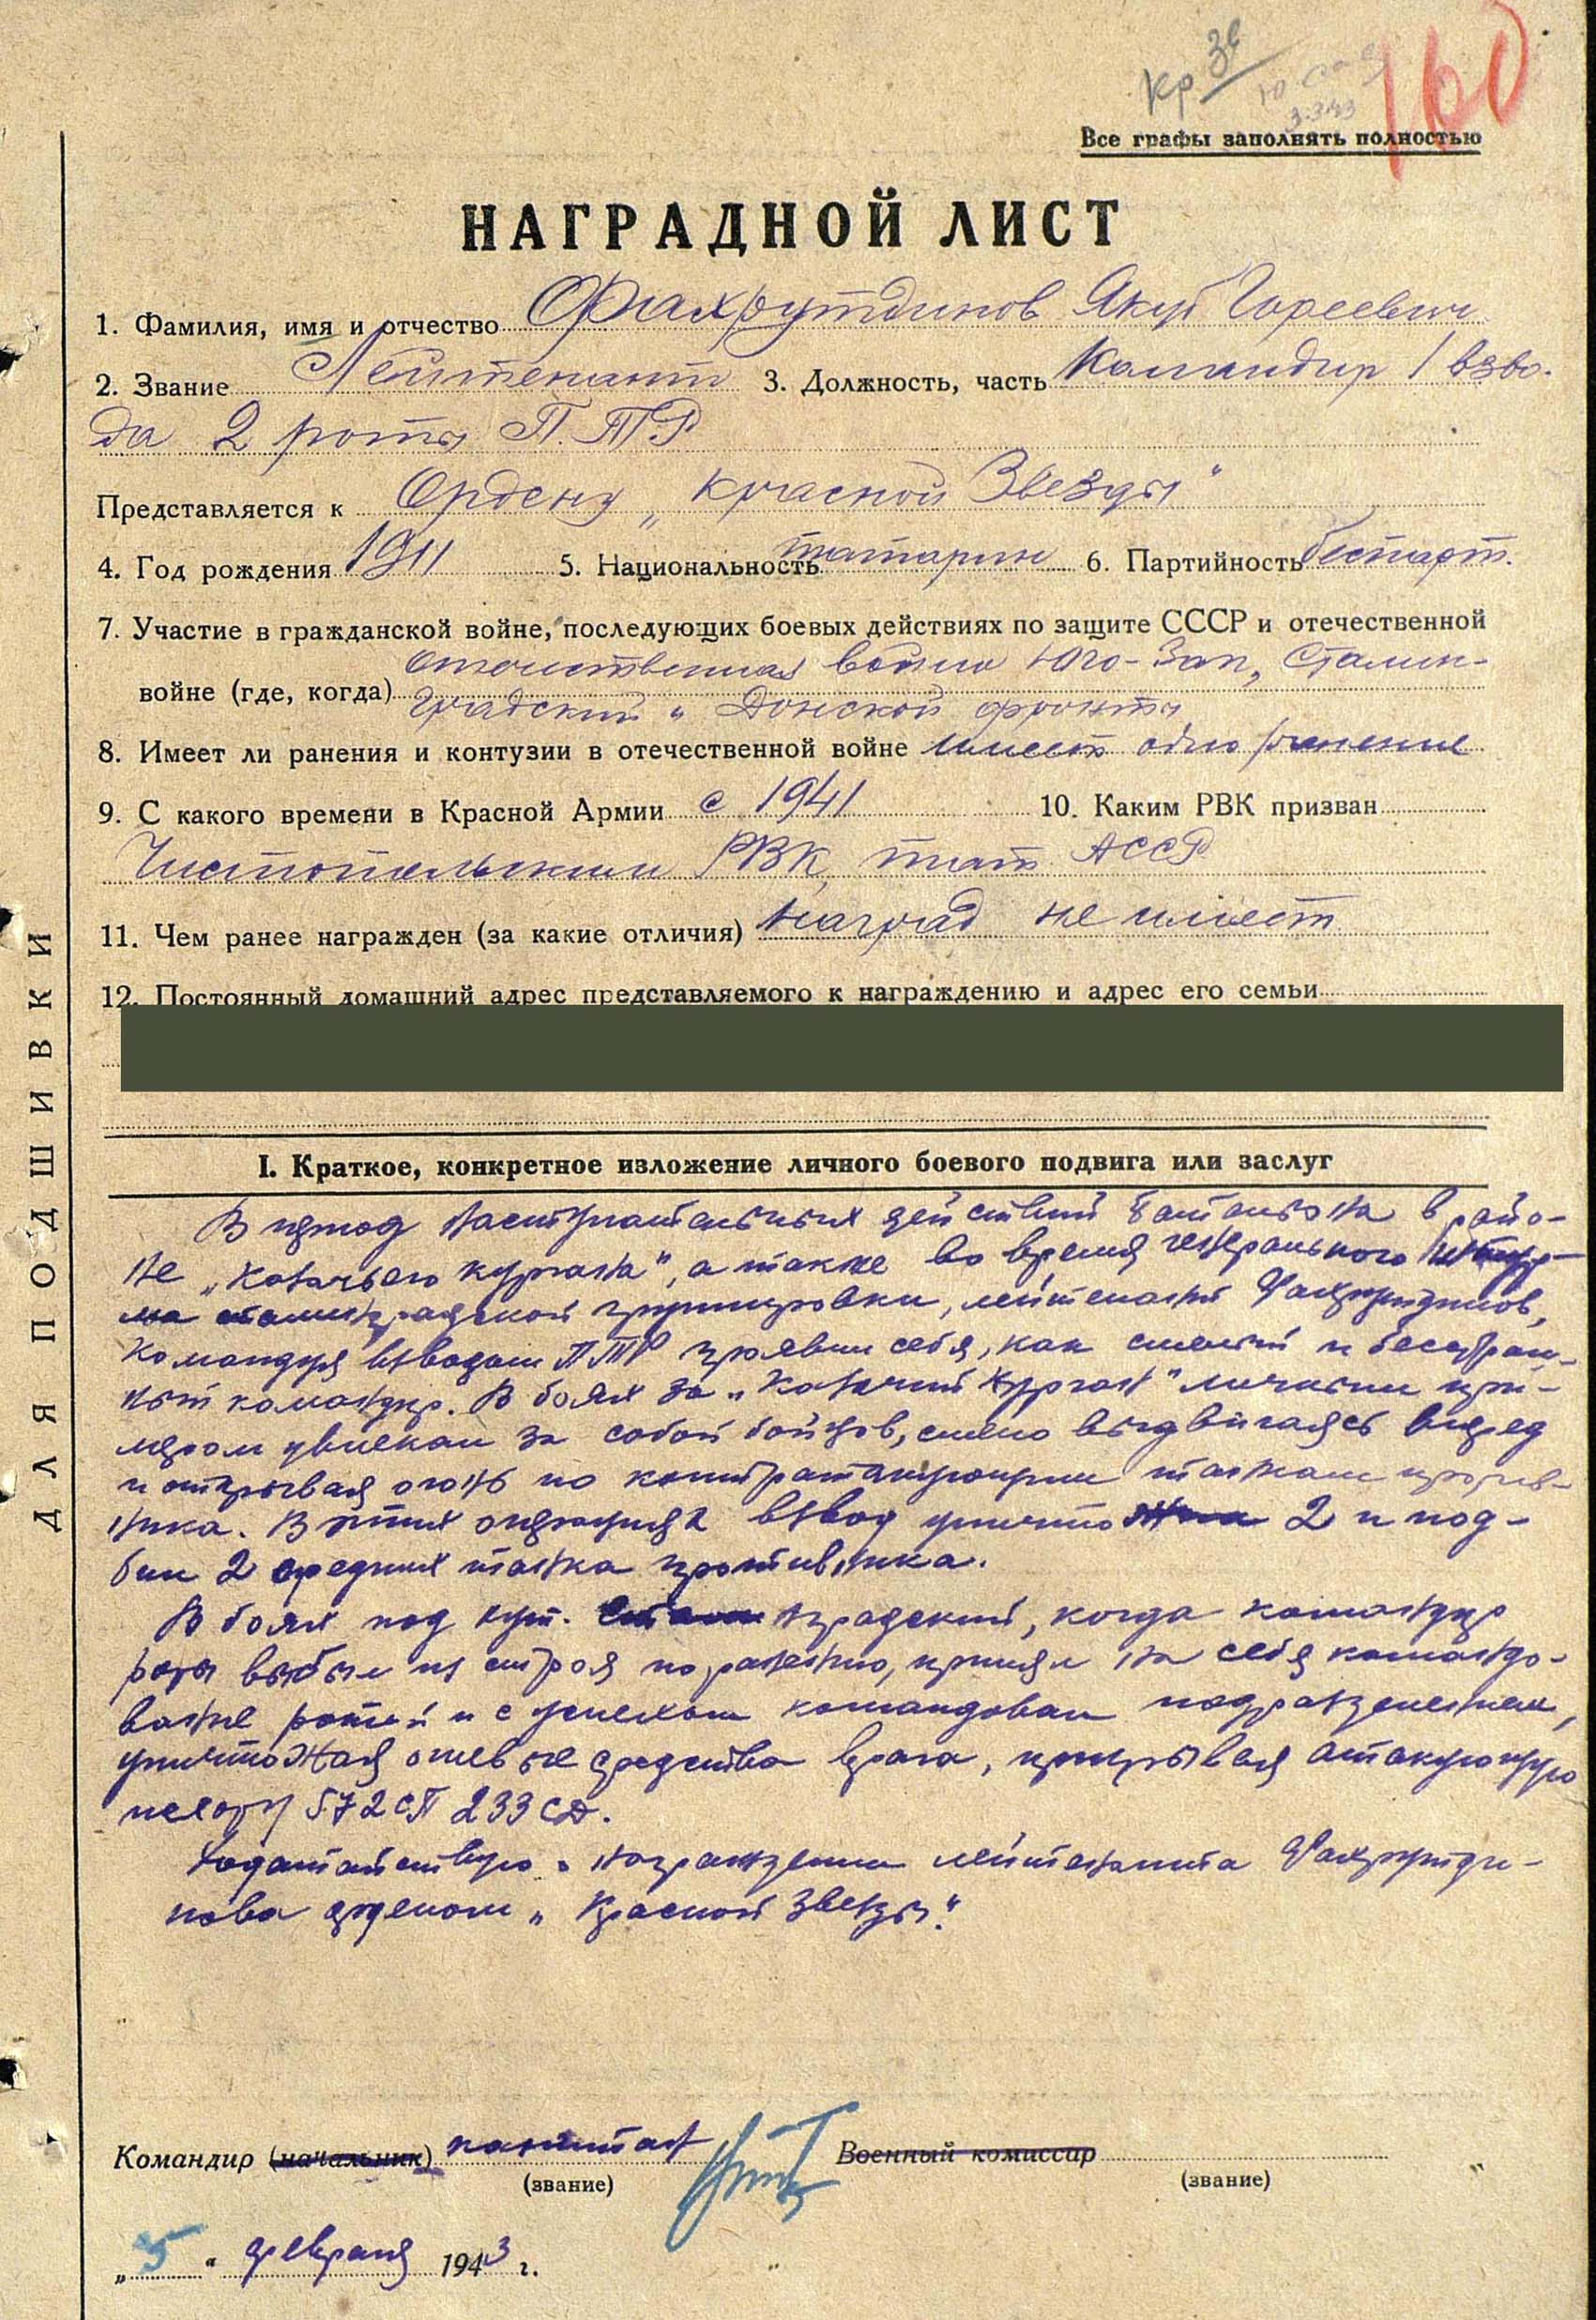 Кр Зв
3.3.43
160
Все графы заполнять полностью
НАГРАДНОЙ ЛИСТ
1. Фамилия, имя и отчество Фахрутдинов Якуб Гареевич
2. Звание Лейтенант 3. Должность, часть Командир 1 взво-
да 2 роты П.ТР
Представляется к Ордену „Красной Звезды"
4. Год рождения 1911 5. Национальность татарин 6. Партийность беспарт.
7. Участие в гражданской войне, последующих боевых действиях по защите СССР и отечественной
войне (где, когда) Отечественная война Юго-Зап, Сталин-
градский и Донской фронты
8. Имеет ли ранения и контузии в отечественной войне имеет одно ранение
9. С какого времени в Красной Армии с 1941 10. Каким РВК призван
Чистопольским РВК, тат. АССР
11. Чем ранее награжден (за какие отличия) наград не имеет
12. Постоянный домашний адрес представляемого к награждению и адрес его семьи
I. Краткое, конкретное изложение личного боевого подвига или заслуг
В период наступательных действий батальона в райо-
не „Казачьего кургана", а также во время генерального штур-
ма сталинградской группировки, лейтенант Фахрутдинов,
командуя взводом ПТР проявил себя, как смелый и бесстраш-
ный командир. В боях за „Казачий Курган" личным при-
мером увлекал за собой бойцов, смело выдвигаясь вперед
и открывая огонь по контратакующим танкам против-
ника. В этих операциях взвод уничтожил 2 и под-
бил 2 средних танка противника.
В боях под хут. градский, когда командир
роты выбыл из строя по ранению, принял на себя командо-
вание ротой и с успехом командовал подразделением,
уничтожая огневые средства врага, прикрывая атакующую
пехоту 572 СП 233 СД.
Ходатайствую о награждении лейтенанта Фахрутди-
нова орденом „Красной Звезды".
Командир (начальник) капитан
(звание)
Военный комиссар
(звание)
„5" февраля 1943 г.
ДЛЯ ПОДШИВКИ